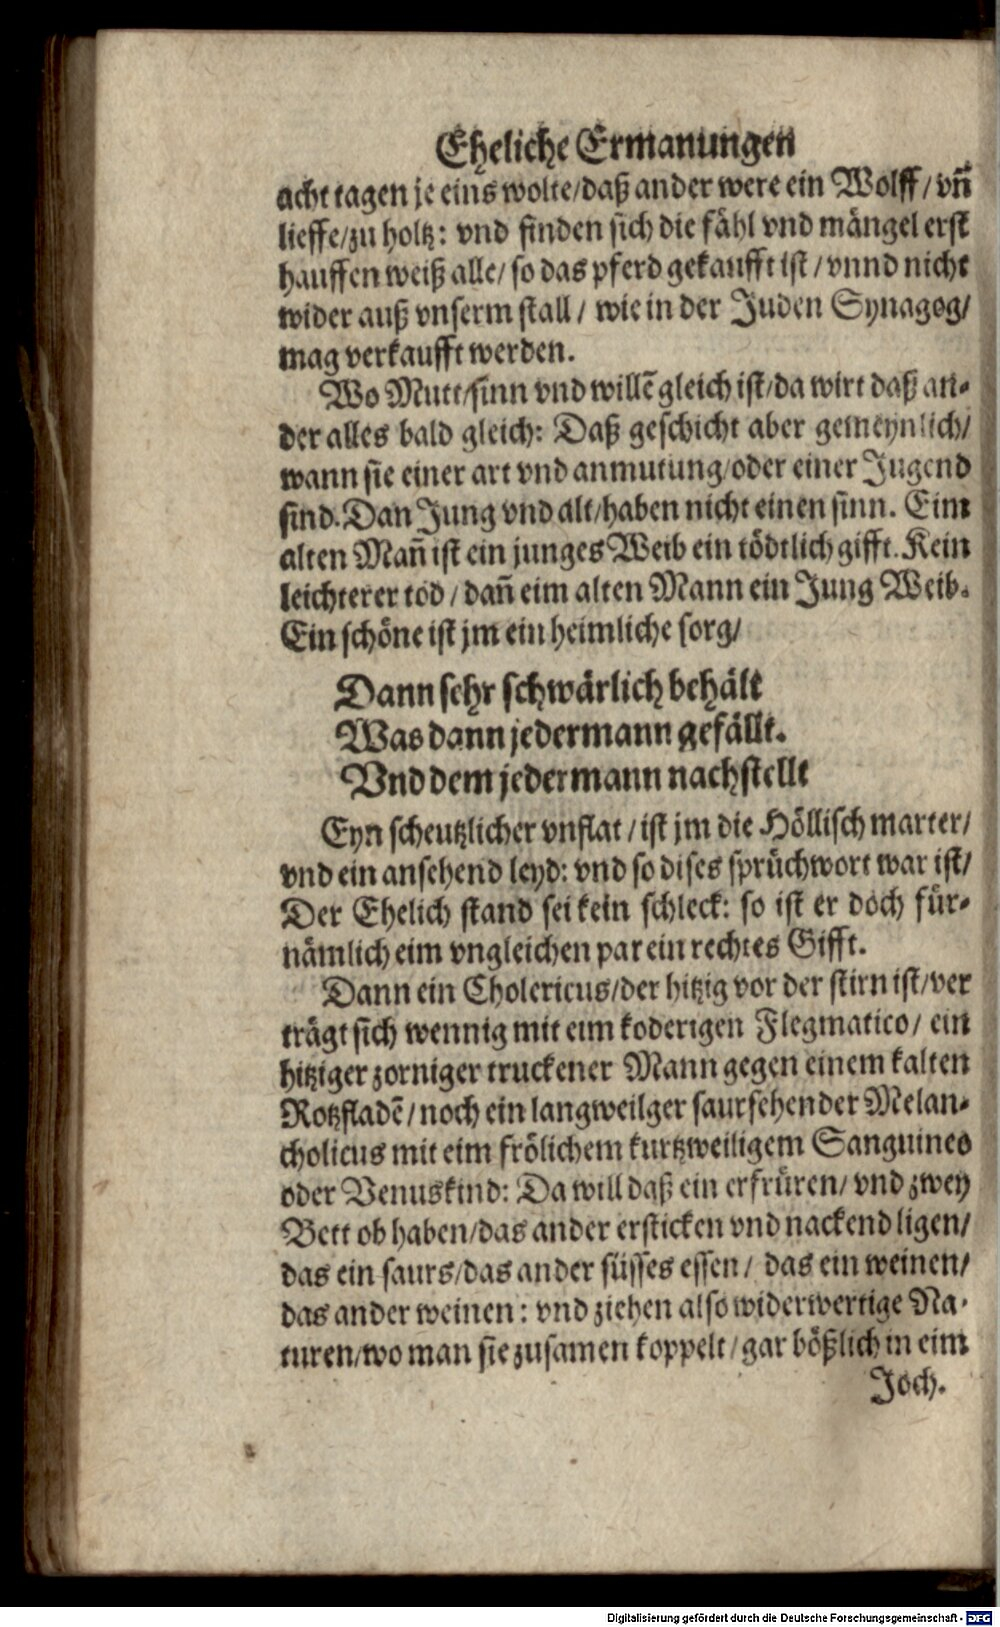 Eheliche Ermanungen
acht tagen je eins wolte/daß ander were ein Wolff/vñ
lieffe/zu holtz: vnd finden sich die fähl vnd mängel erst
hauffen weiß alle/so das pferd gekaufft ist/vnnd nicht
wider auß vnserm stall/ wie in der Juden Synagog/
mag verkaufft werden.
Wo Mutt/sinn vnd willẽ gleich ist/da wirt daß an-
der alles bald gleich: Daß geschicht aber gemeynlich/
wann sie einer art vnd anmutung/oder einer Jugend
sind. Dan Jung vnd alt/haben nicht einen sinn. Eim
alten Mañ ist ein junges Weib ein tödtlich gifft. Kein
leichterer tod/dañ eim alten Mann ein Jung Weib.
Ein schöne ist jm ein heimliche sorg/
Dann sehr schwärlich behält
Was dann jedermann gefällt.
Vnd dem jedermann nachstellt
Eyn scheutzlicher vnflat/ist jm die Höllisch marter/
vnd ein ansehend leyd: vnd so dises sprüchwort war ist/
Der Ehelich stand sei kein schleck: so ist er doch für-
nämlich eim vngleichen par ein rechtes Gifft.
Dann ein Cholericus/der hitzig vor der stirn ist/ver
trägt sich wennig mit eim koderigen Flegmatico/ ein
hitziger zorniger truckener Mann gegen einem kalten
Rotzfladẽ/noch ein langweilger saursehender Melan-
cholicus mit eim frölichem kurtzweiligem Sanguineo
oder Venuskind: Da will daß ein erfrüren/vnd zwey
Bett ob haben/das ander ersticken vnd nackend ligen/
das ein saurs/das ander süsses essen/ das ein weinen/
das ander weinen: vnd ziehen also widerwertige Na-
turen/wo man sie zusamen koppelt/gar bößlich in eim
Joch.
Digitalisierung gefördert durch die Deutsche Forschungsgemeinschaft - DFG